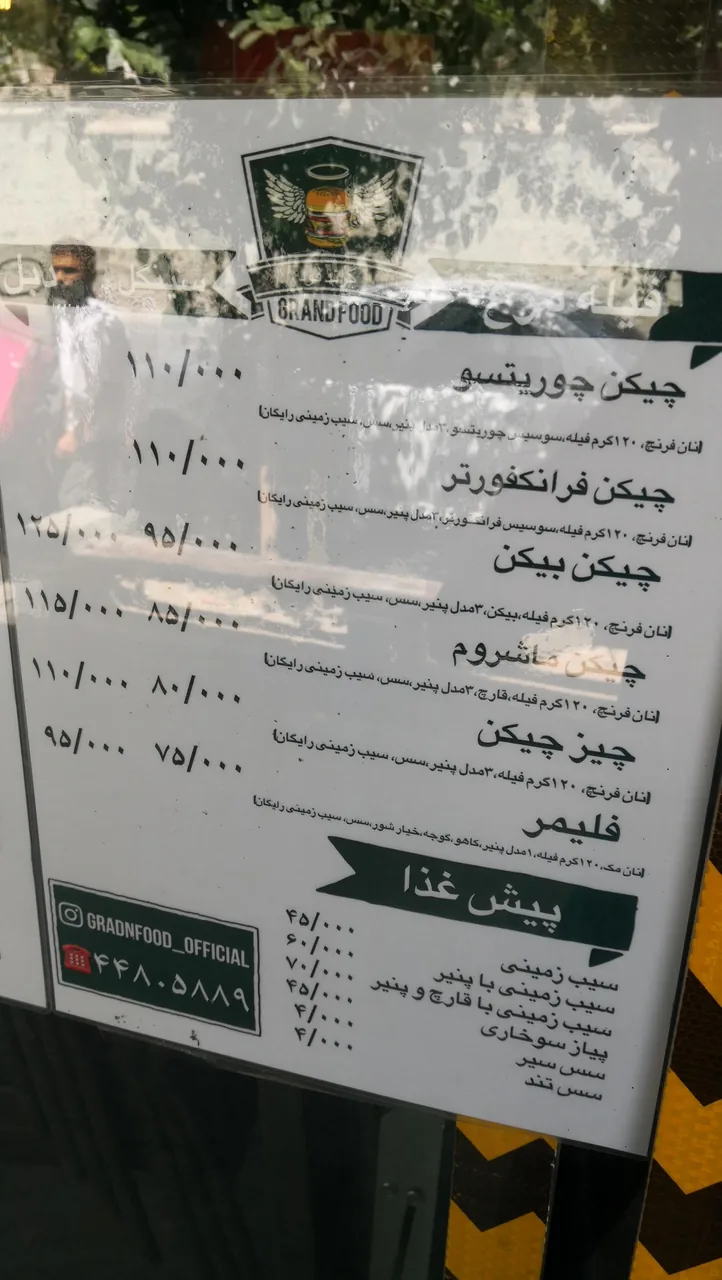 GRANDFOOD
فیله مرغ سینگل دبل
چیکن چوریتسو ۱۱۰/۰۰۰
(نان فرنچ، ۱۲۰گرم فیله،سوسیس چوریتسو،۳مدل پنیر،سس، سیب زمینی رایگان)
چیکن فرانکفورتر ۱۱۰/۰۰۰
(نان فرنچ، ۱۲۰گرم فیله،سوسیس فرانکفورتر،۳مدل پنیر،سس، سیب زمینی رایگان)
چیکن بیکن ۹۵/۰۰۰ ۱۲۵/۰۰۰
(نان فرنچ، ۱۲۰گرم فیله،بیکن،۳مدل پنیر،سس، سیب زمینی رایگان)
چیکن ماشروم ۸۵/۰۰۰ ۱۱۵/۰۰۰
(نان فرنچ، ۱۲۰گرم فیله،قارچ،۳مدل پنیر،سس، سیب زمینی رایگان)
چیز چیکن ۸۰/۰۰۰ ۱۱۰/۰۰۰
(نان فرنچ، ۱۲۰گرم فیله،۳مدل پنیر،سس، سیب زمینی رایگان)
فلیمر ۷۵/۰۰۰ ۹۵/۰۰۰
(نان مک،۱۲۰گرم فیله،۱مدل پنیر،کاهو،گوجه،خیار شور،سس، سیب زمینی رایگان)
پیش غذا
سیب زمینی ۴۵/۰۰۰
سیب زمینی با پنیر ۶۰/۰۰۰
سیب زمینی با قارچ و پنیر ۷۰/۰۰۰
پیاز سوخاری ۴۵/۰۰۰
سس سیر ۴/۰۰۰
سس تند ۴/۰۰۰
GRADNFOOD_OFFICIAL
۴۴۸۰۵۸۸۹